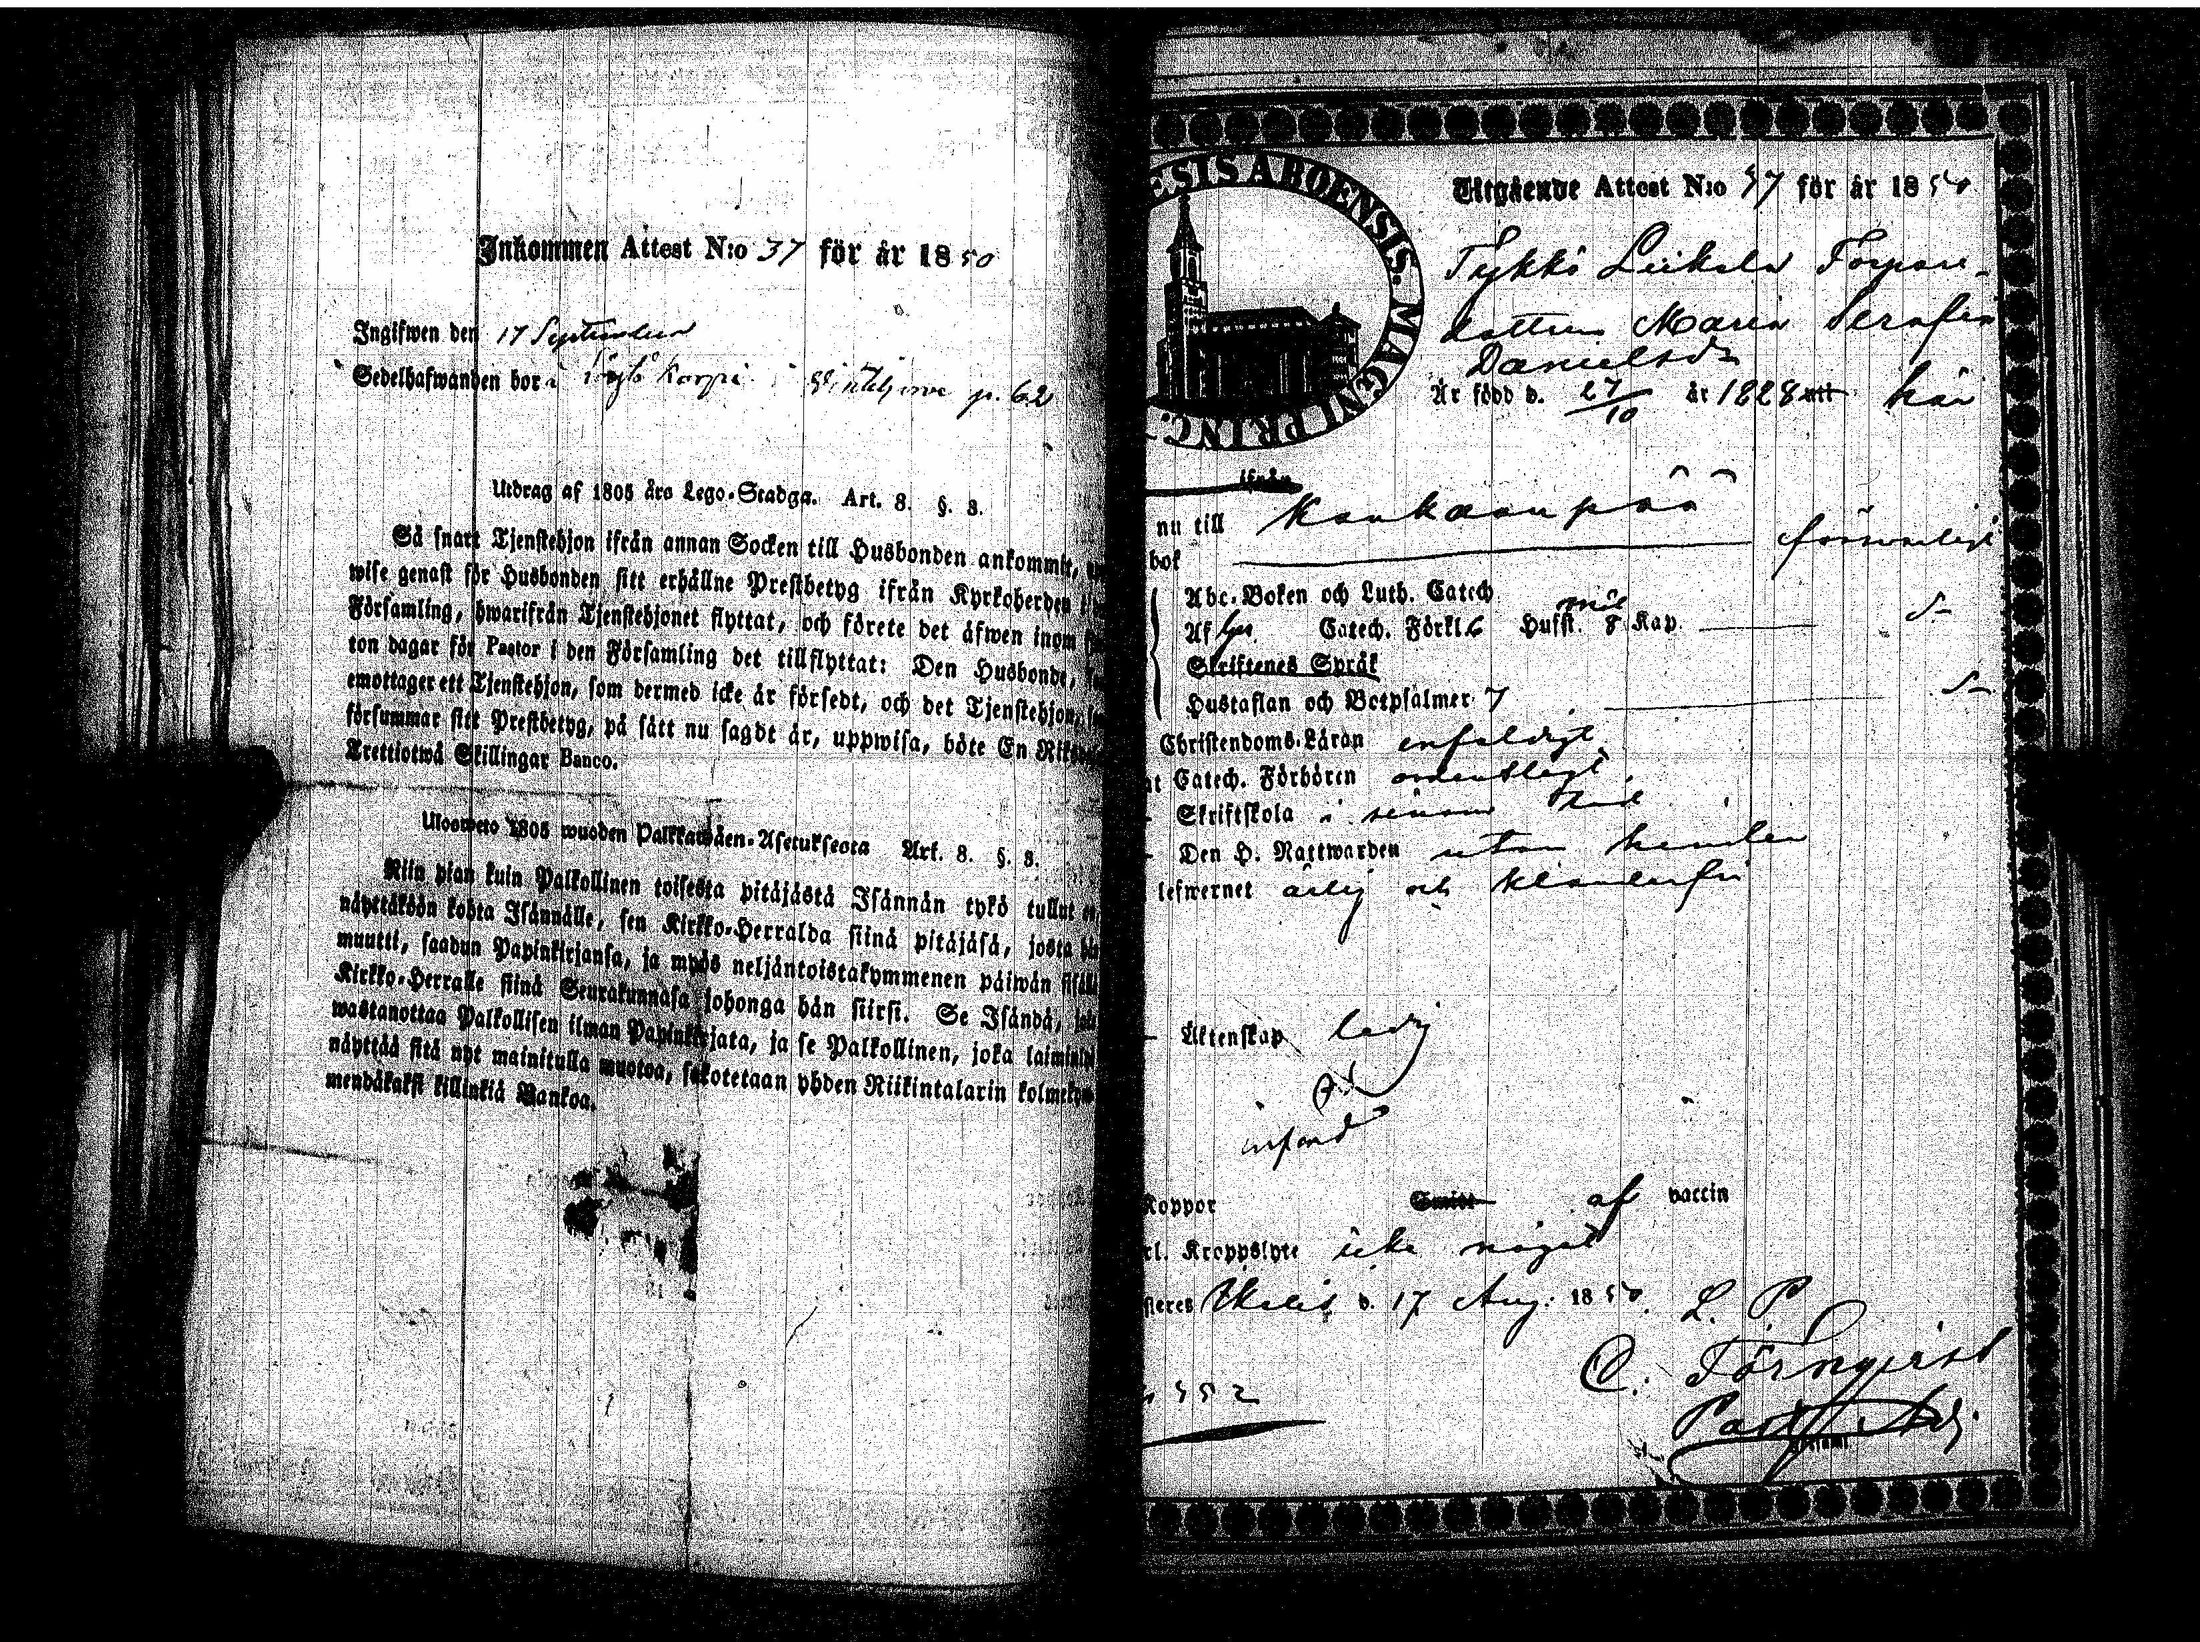 Inkommen Attest N:o 37 för år 1850
Ingifwen den 17 September
Sedelhafwanden bor å Korpi i p. 62
Utdrag af 1805 års Lego-Stadga. Art. 8. §. 3.
Så snart Tjenstehjon ifrån annan Socken till Husbonden ankommit,
wise genast för Husbonden sitt erhållne Prestbetyg ifrån Kyrkoherden
Församling, hwarifrån Tjenstehjonet flyttat, och förete det äfwen inom
ton dagar för Pastor i den Församling det tillflyttat: Den Husbonde,
emottager ett Tjenstehjon, som dermed icke är försedt, och det Tjenstehjon,
försummar sitt Prestbetyg, på sätt nu sagdt är, uppwisa, böte En
Trettiotwå Skillingar Banco.
Ulosweto 1805 wuoden Palkkawäen-Asetuksesta Art. 8. §. 3.
Niin pian kuin Palkollinen toisesta pitäjästä Isännän tykö tullut
näyttäköön kohta Isännälle, sen Kirkko-Herralda siinä pitäjäsä, josta
muutti, saadun Papinkirjansa, ja myös neljäntoistakymmenen päiwän
Kirkko-Herralle siinä Seurakunnasa johonga hän siirsi. Se Isändä,
wastanottaa Palkollisen ilman Papinkirjata, ja se Palkollinen, joka
näyttää sitä nyt mainitulla muotoa, sakotetaan yhden Riikintalarin
mendäkaksi killinkiä Bankoa.
ESIS ABOENSIS. MAGNI PRINC.
Utgående Attest N:o 37 för år 1850
Tykkö Leikola Torpare-
dottren Maria Serafia
Danielsdr
Är född d. 27/10 år 1828 här
ifrån
nu till Kankaanpää
bok försvarligt
Abc-Boken och Luth. Catech
Catech. Förkl. 6 Hufst. 8 Kap.
Skriftenes Språk
Hustaflan och Botpsalmer 7
Christendoms-Läran enfaldigt
Catech. Förhören ordentligt
Skriftskola i
Den H. Nattwarden utan hinder
lefwernet ärlig och klanderfri
Äktenskap ledig
införd
Koppor af vaccin
Kroppslyte icke något
d. 17 Aug: 1850.
L. P.
C. Törnqvist
Past. Adj.
552